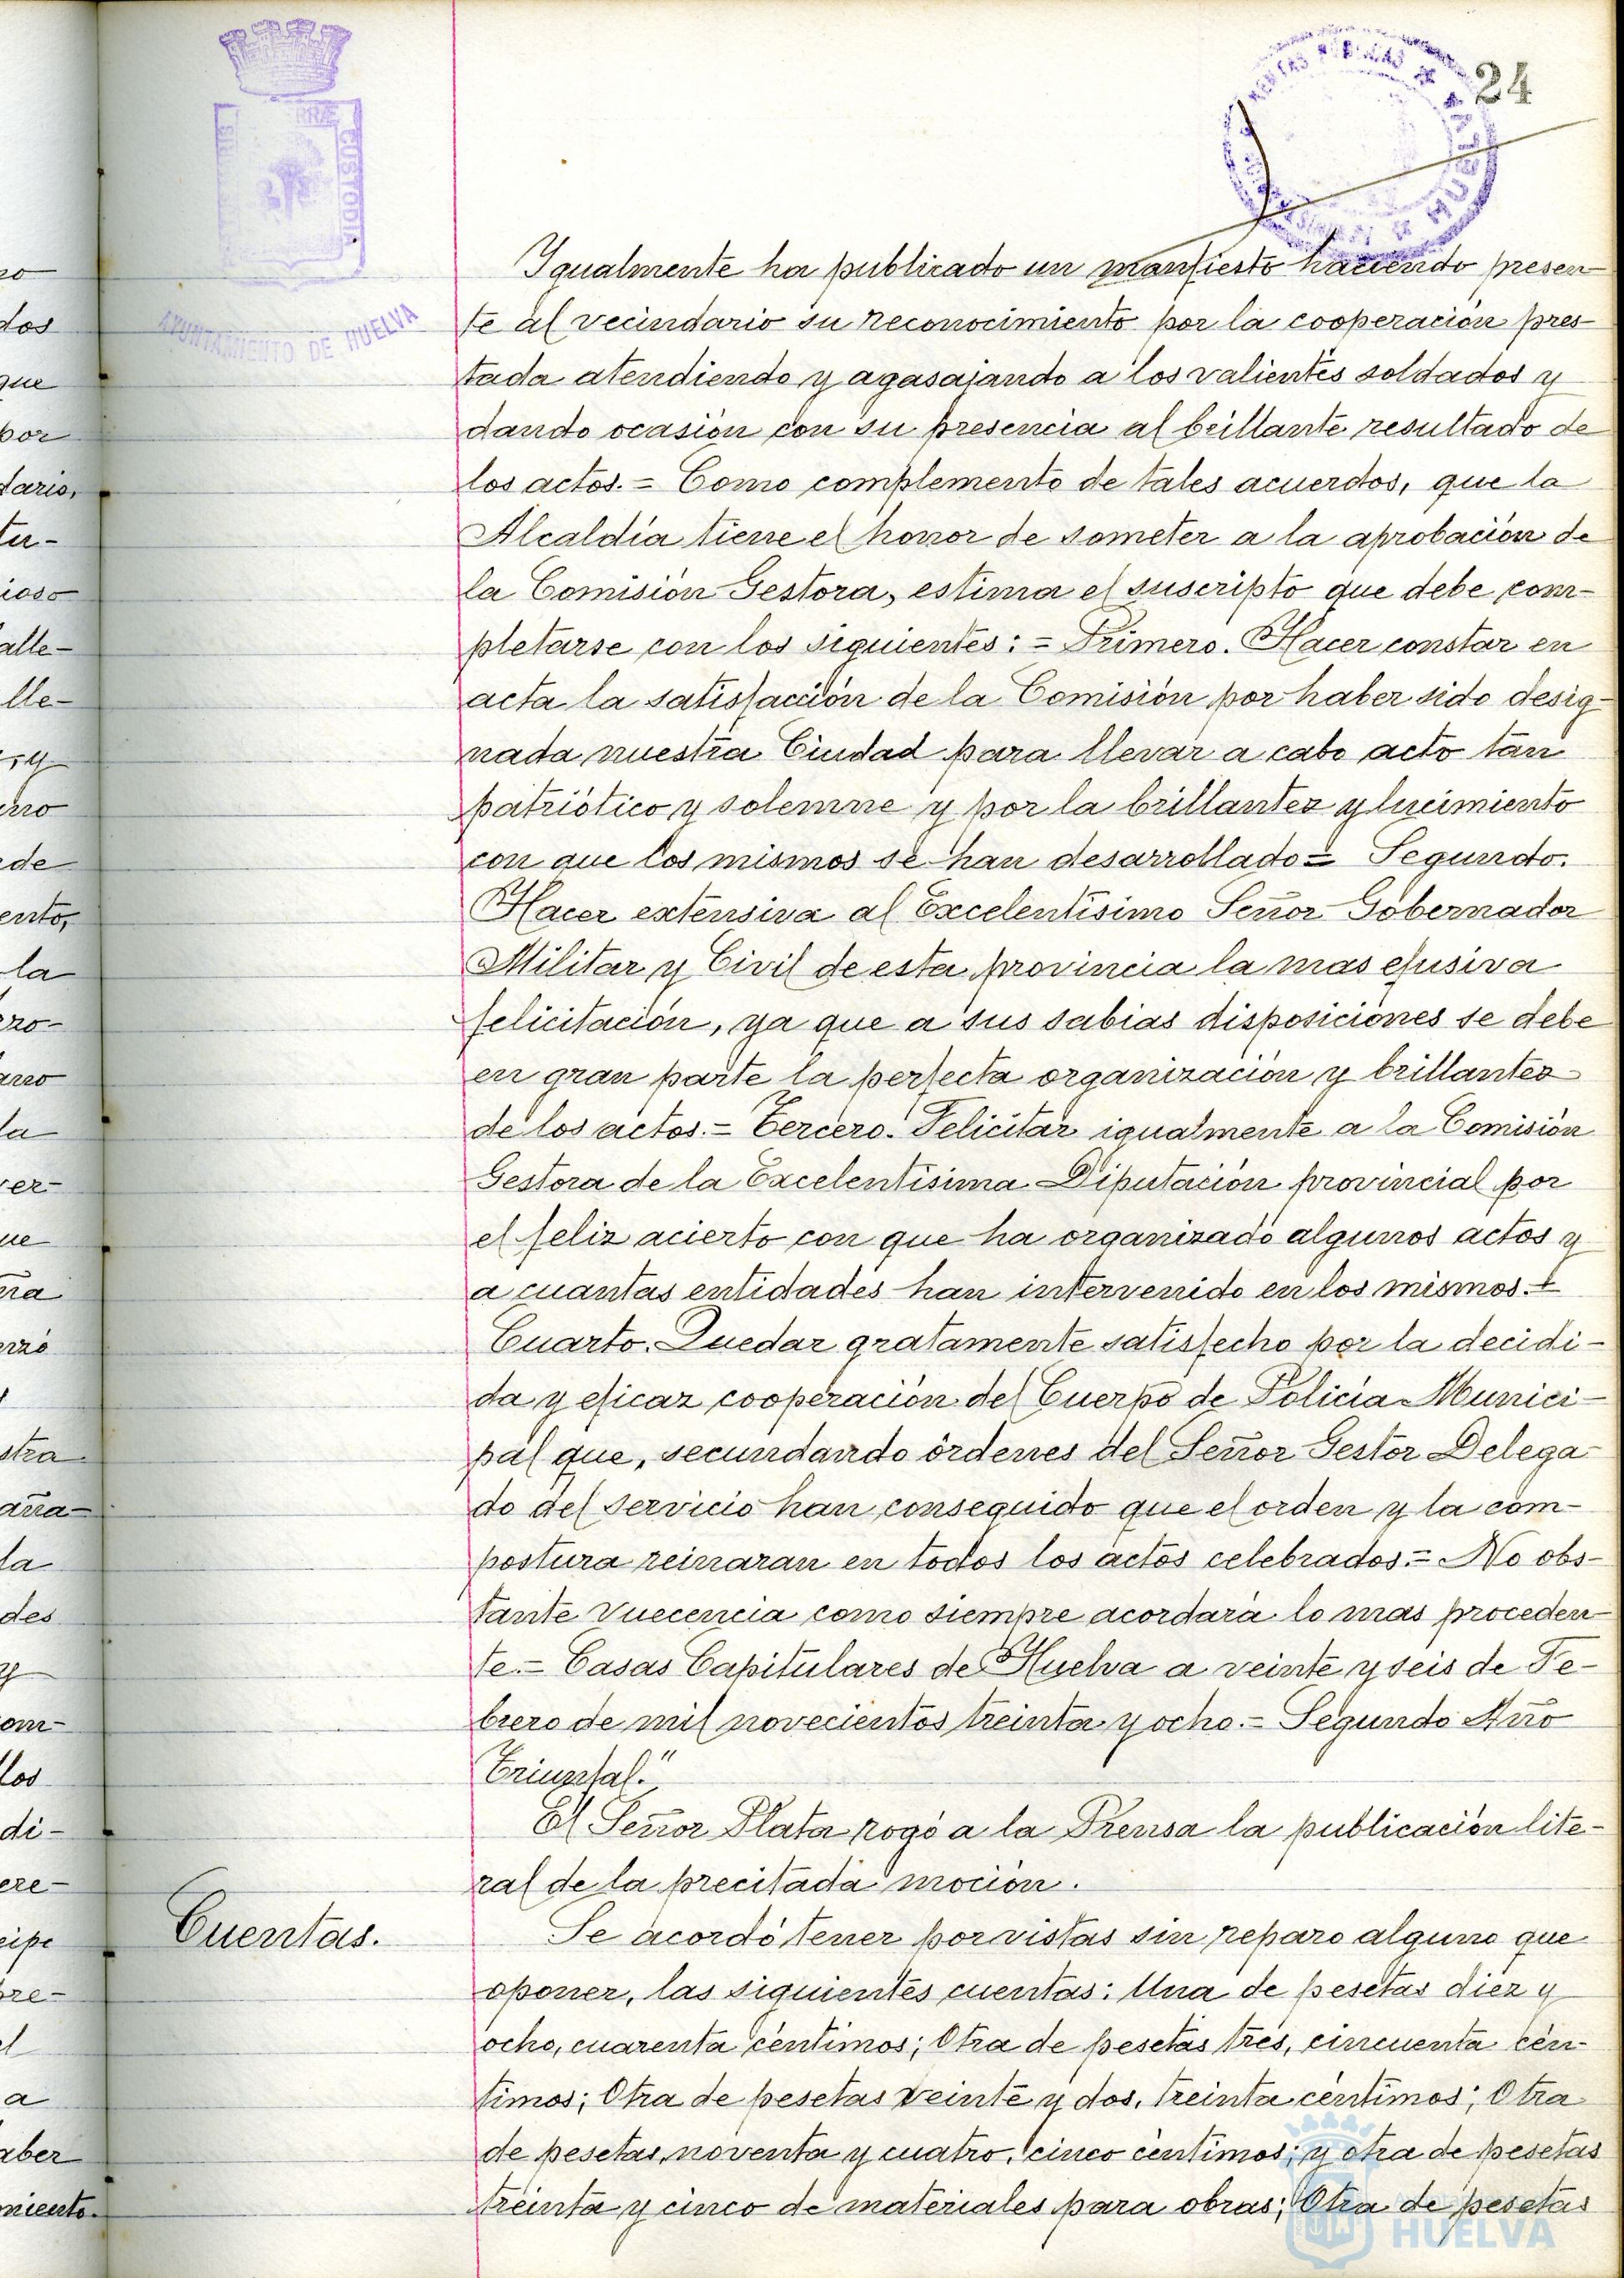 24
RRÆ CUSTODIA
AYUNTAMIENTO DE HUELVA
HUELVA
Igualmente ha publicado un manfiesto haciendo presen-
te al vecindario su reconocimiento por la cooperación pres-
tada atendiendo y agasajando a los valientes soldados y
dando ocasión con su presencia al brillante resultado de
los actos.= Como complemento de tales acuerdos, que la
Alcaldía tiene el honor de someter a la aprobación de
la Comisión Gestora, estima el suscripto que debe com-
pletarse con los siguientes: = Primero. Hacer constar en
acta la satisfacción de la Comisión por haber sido desig-
nada nuestra Ciudad para llevar a cabo acto tan
patriótico y solemne y por la brillantez y lucimiento
con que los mismos se han desarrollado = Segundo.
Hacer extensiva al Excelentísimo Señor Gobernador
Militar y Civil de esta provincia la mas efusiva
felicitación, ya que a sus sabias disposiciones se debe
en gran parte la perfecta organización y brillantez
de los actos.= Tercero. Felicitar igualmente a la Comisión
Gestora de la Excelentísima Diputación provincial por
el feliz acierto con que ha organizado algunos actos y
a cuantas entidades han intervenido en los mismos.=
Cuarto. Quedar gratamente satisfecho por la decidi-
da y eficaz cooperación del Cuerpo de Policía Munici-
pal que, secundando órdenes del Señor Gestor Delega-
do del servicio han conseguido que el orden y la com-
postura reinaran en todos los actos celebrados.= No obs-
tante Vuecencia como siempre acordará lo mas proceden-
te.= Casas Capitulares de Huelva a veinte y seis de Fe-
brero de mil novecientos treinta y ocho.= Segundo Año
Triunfal."
El Señor Plata rogó a la Prensa la publicación lite-
ral de la precitada moción.
Cuentas.
Se acordó tener por vistas sin reparo alguno que
oponer, las siguientes cuentas: Una de pesetas diez y
ocho, cuarenta céntimos; Otra de pesetas tres, cincuenta cén-
timos; Otra de pesetas veinte y dos, treinta céntimos; Otra
de pesetas noventa y cuatro, cinco céntimos; y otra de pesetas
treinta y cinco de materiales para obras; Otra de pesetas
HUELVA